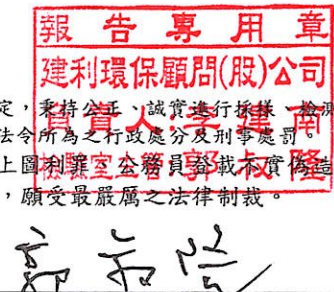 報告專用章
建利環保顧問(股)公司
負責人:李建南
檢驗室主管:郭淑隆
定,秉持公正、誠實進行採樣、檢測
法令所為之行政處分及刑事處罰。
上圖利罪、公務員登載不實偽造
,願受最嚴厲之法律制裁。